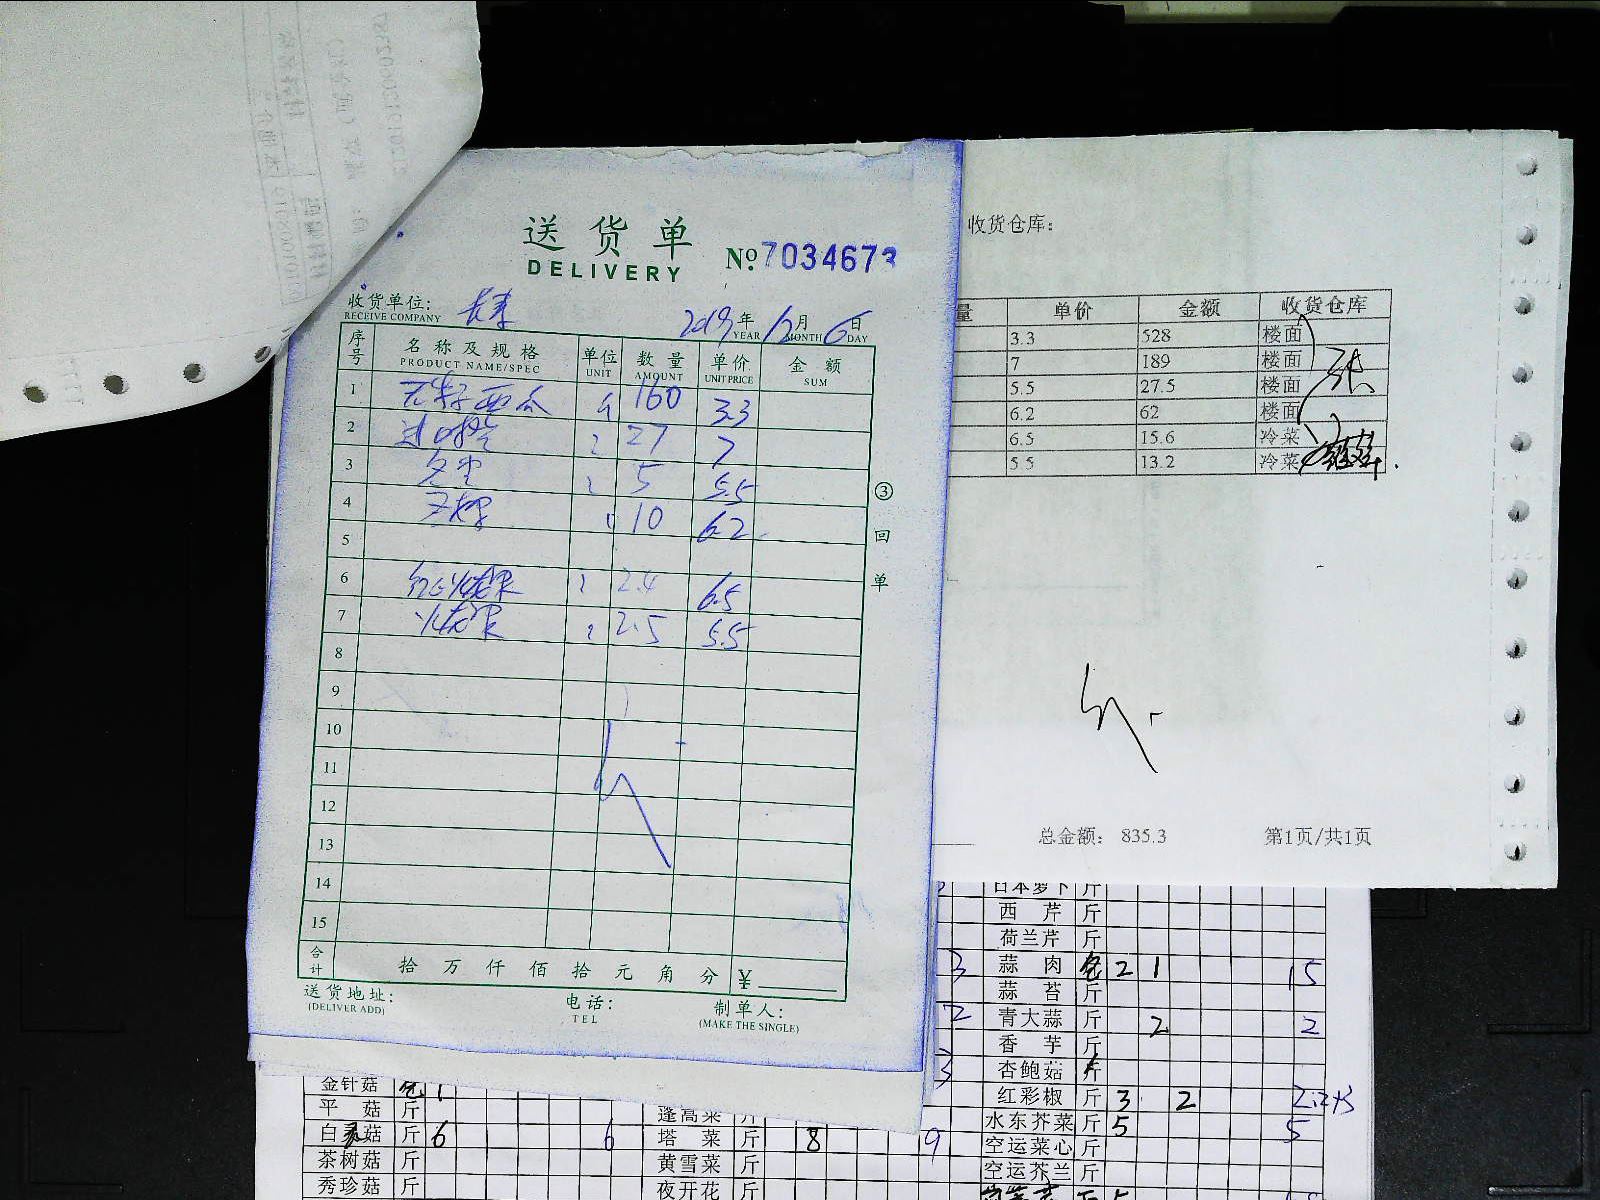 送货单
DELIVERY
No. 7034673
收货单位:
RECEIVE COMPANY
2019年 12月 6日
YEAR MONTH DAY
序号 名称及规格 单位 数量 单价 金额
PRODUCT NAME/SPEC UNIT AMOUNT UNIT PRICE SUM
1 无籽西瓜 160 3.3
2 27 7
3 5 5.5
4 10 6.2
5
6 红心火龙果 2.4 6.5
7 火龙果 2.5 5.5
8
9
10
11
12
13
14
15
合计 拾 万 仟 佰 拾 元 角 分 ¥
③ 回单
送货地址:
(DELIVER ADD)
电话:
TEL
制单人:
(MAKE THE SINGLE)
收货仓库:
量 单价 金额 收货仓库
3.3 528 楼面
7 189 楼面
5.5 27.5 楼面
6.2 62 楼面
6.5 15.6 冷菜
5.5 13.2 冷菜
总金额: 835.3 第1页/共1页
日本萝卜 斤
西芹 斤
荷兰芹 斤
3 蒜肉 包 2 1 15
蒜苔 斤
2 青大蒜 斤 2 2
香芋 斤
3 杏鲍菇 斤
红彩椒 斤 3 2
水东芥菜 斤 5 5
空运菜心 斤
空运芥兰 斤
金针菇 包 1
平菇 斤
白灵菇 斤 6 6
茶树菇 斤
秀珍菇 斤
蓬蒿菜 斤
塔菜 斤 8 9
黄雪菜 斤
夜开花 斤